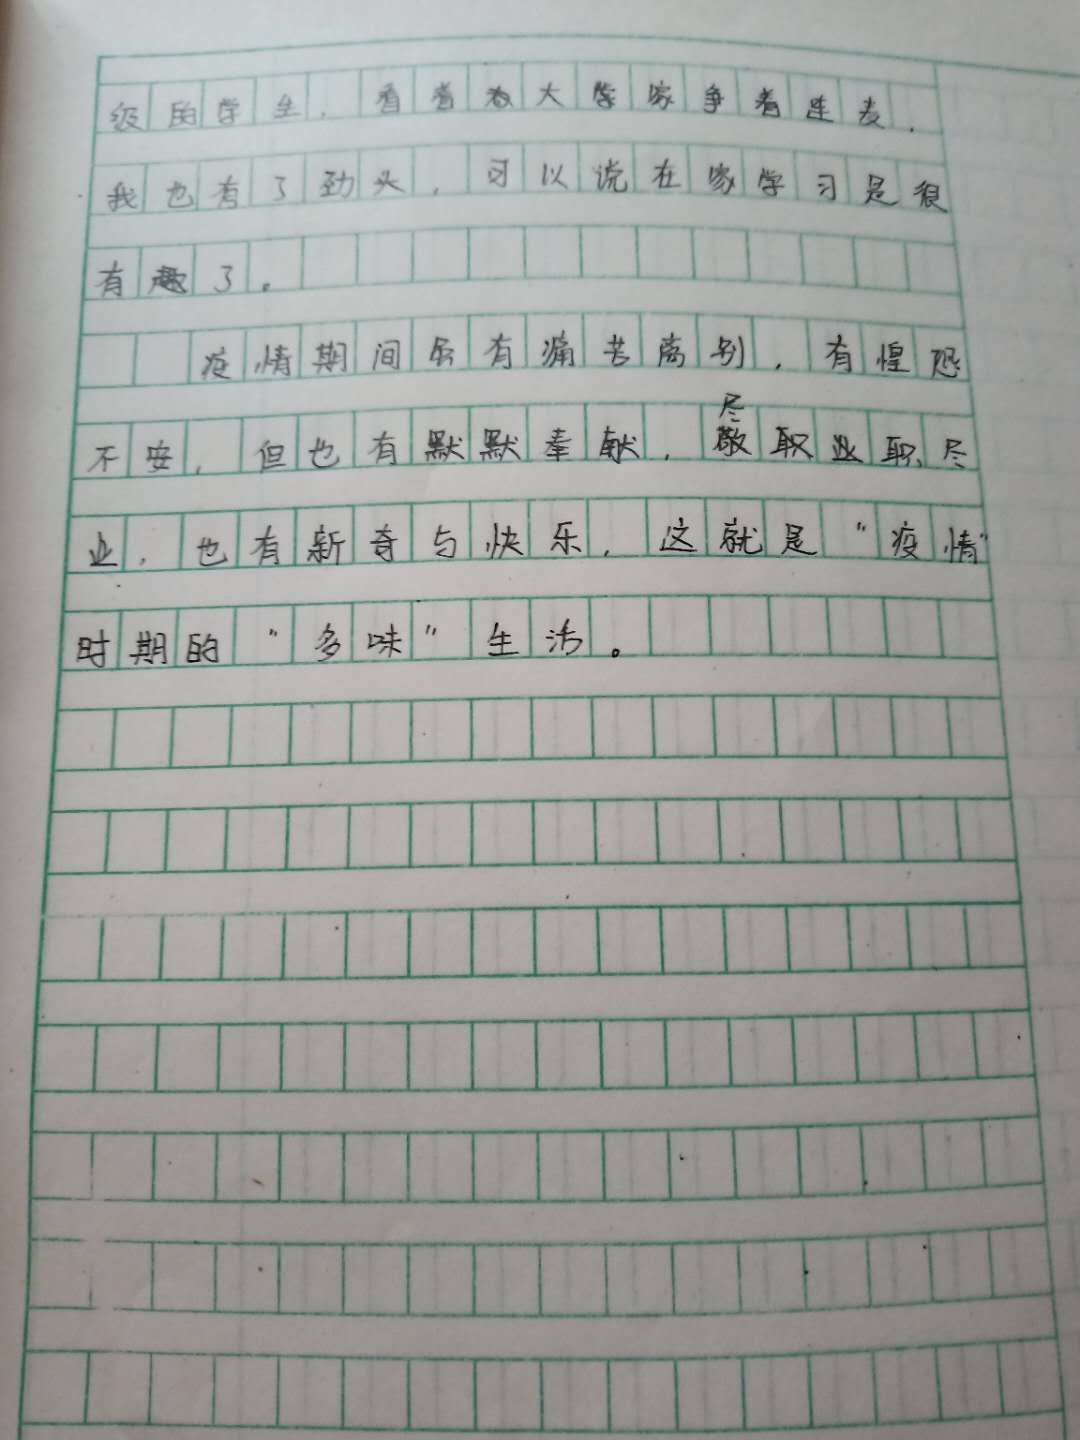 级的学生，看着大家争着连麦，
我也有了劲头，可以说在家学习是很
有趣了。
疫情期间虽有痛苦离别，有惶恐
不安，但也有默默奉献，尽职业职尽
业，也有新奇与快乐，这就是“疫情”
时期的“多味”生活。